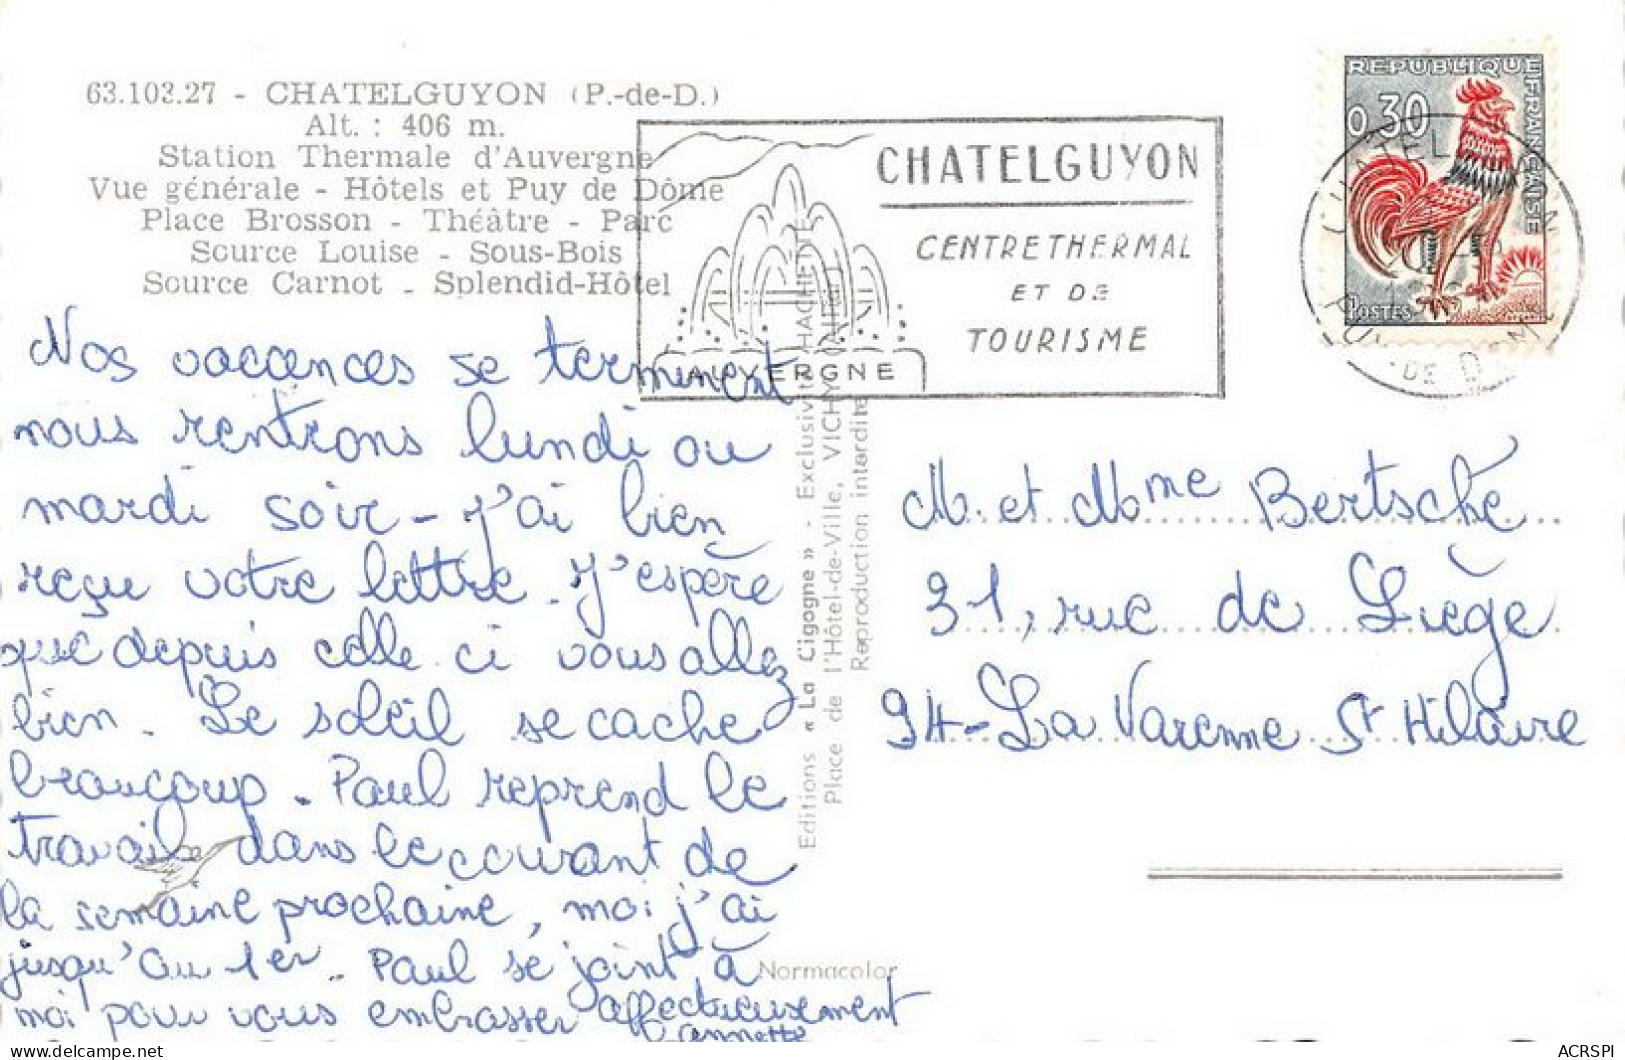 63.103.27 - CHATELGUYON (P.-de-D.)
Alt. : 406 m.
Station Thermale d'Auvergne
Vue générale - Hôtels et Puy de Dôme
Place Brosson - Théâtre - Parc
Source Louise - Sous-Bois
Source Carnot - Splendid-Hôtel
Nos vacances se terminent
nous rentrons lundi ou
mardi soir - J'ai bien
reçu votre lettre. J'espère
que depuis celle ci vous allez
bien. Le soleil se cache
beaucoup. Paul reprend le
travail dans le courant de
la semaine prochaine, moi j'ai
jusqu'au 1er. Paul se joint à
moi pour vous embrasser affectueusement
Editions « La Cigogne » - Exclusivité HACHETTE
Place de l'Hôtel-de-Ville, VICHY (Allier)
Reproduction interdite
Normacolor
CHATELGUYON
CENTRE THERMAL
ET DE
TOURISME
AUVERGNE
REPUBLIQUE FRANÇAISE
0,30
POSTES
CHATELGUYON
PUY-DE DOME
M. et Mme Bertsché
31, rue de Liège
94 - La Varenne St Hilaire
ACRSPI